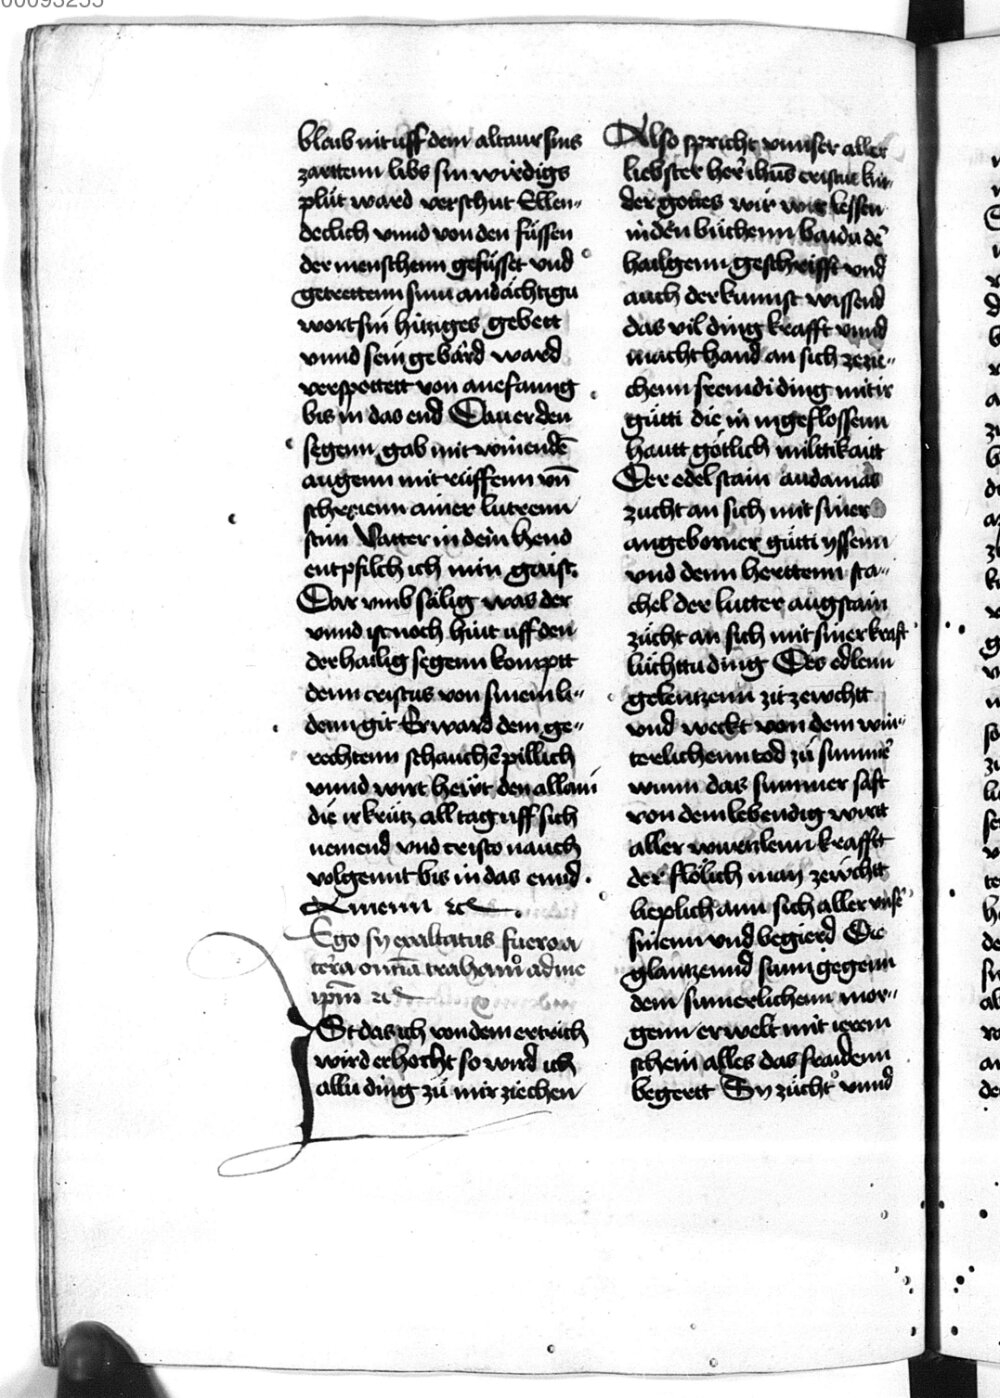 00095255
blaib nit uff dem altaur sins
zarttenn libs sin wirdigs
plůt ward verschut Ellen-
decklich vnnd von den füssen
der menschenn gefüsset vnd
getrettenn sinn andächtigu
wort sin hitziges gebett
vnnd sein gebärd ward
verspottett von anefanng
bis in das end Da uer den
segenn gab mit wainendē
augenn mit rüffenn vn̄
schreienn ainer lutrenn
stim Vatter in dein hend
entpfilch ich min gaist
Dar vmb sälig was der
vnnd ist noch hüt uff den
der hailig segenn komptt
denn cristus von sinem li-
denn git Er ward dem ge-
rechtenn schauchē pillich
vnnd wirt heüt den allain
die ir krütz all tag uff sich
nemend vnd cristo nauch
volgennt bis in das ennd
Amenn ꝛc
Ego si exaltatus fuero a
terra omīa traham ad me
ipm̄ ꝛc
St das ich von dem ertrich
wird erhöcht so wird ich
allu ding zů mir ziechen
Also spricht vnnser aller
liebster her ihūs cristus kin-
der gottes wir lessen
in den bůchenn baidu dē
hailgenn geschrifft vnd
auch der kunnst wissend
das vil ding krafft vnnd
macht hand an sich ze zie-
chenn fremdi ding mit ir
gütti die in ingeflossenn
hautt götlich miltikaitt
Der edel stain adamas
zucht an sich mit siner
angeborner gütti yssenn
vnd denn herttenn sta-
chel der lutter augstain
zücht an sich mit siner kraft
lüchttu ding Des edlenn
gelentzenn zit zewchtt
vnd weckt von dem win-
terlichenn tod zů summē
wunn das summer saft
von dem lebendig wirtt
aller wurtzlenn krafftt
der flölich may zewchtt
lieplich ann sich aller vnsē
sinenn vnd begierd Die
glantzennd sunn gegenn
dem sumerlichenn mor-
genn erwelt mit irem
schein alles das fraidenn
begertt Sy zücht vnnd